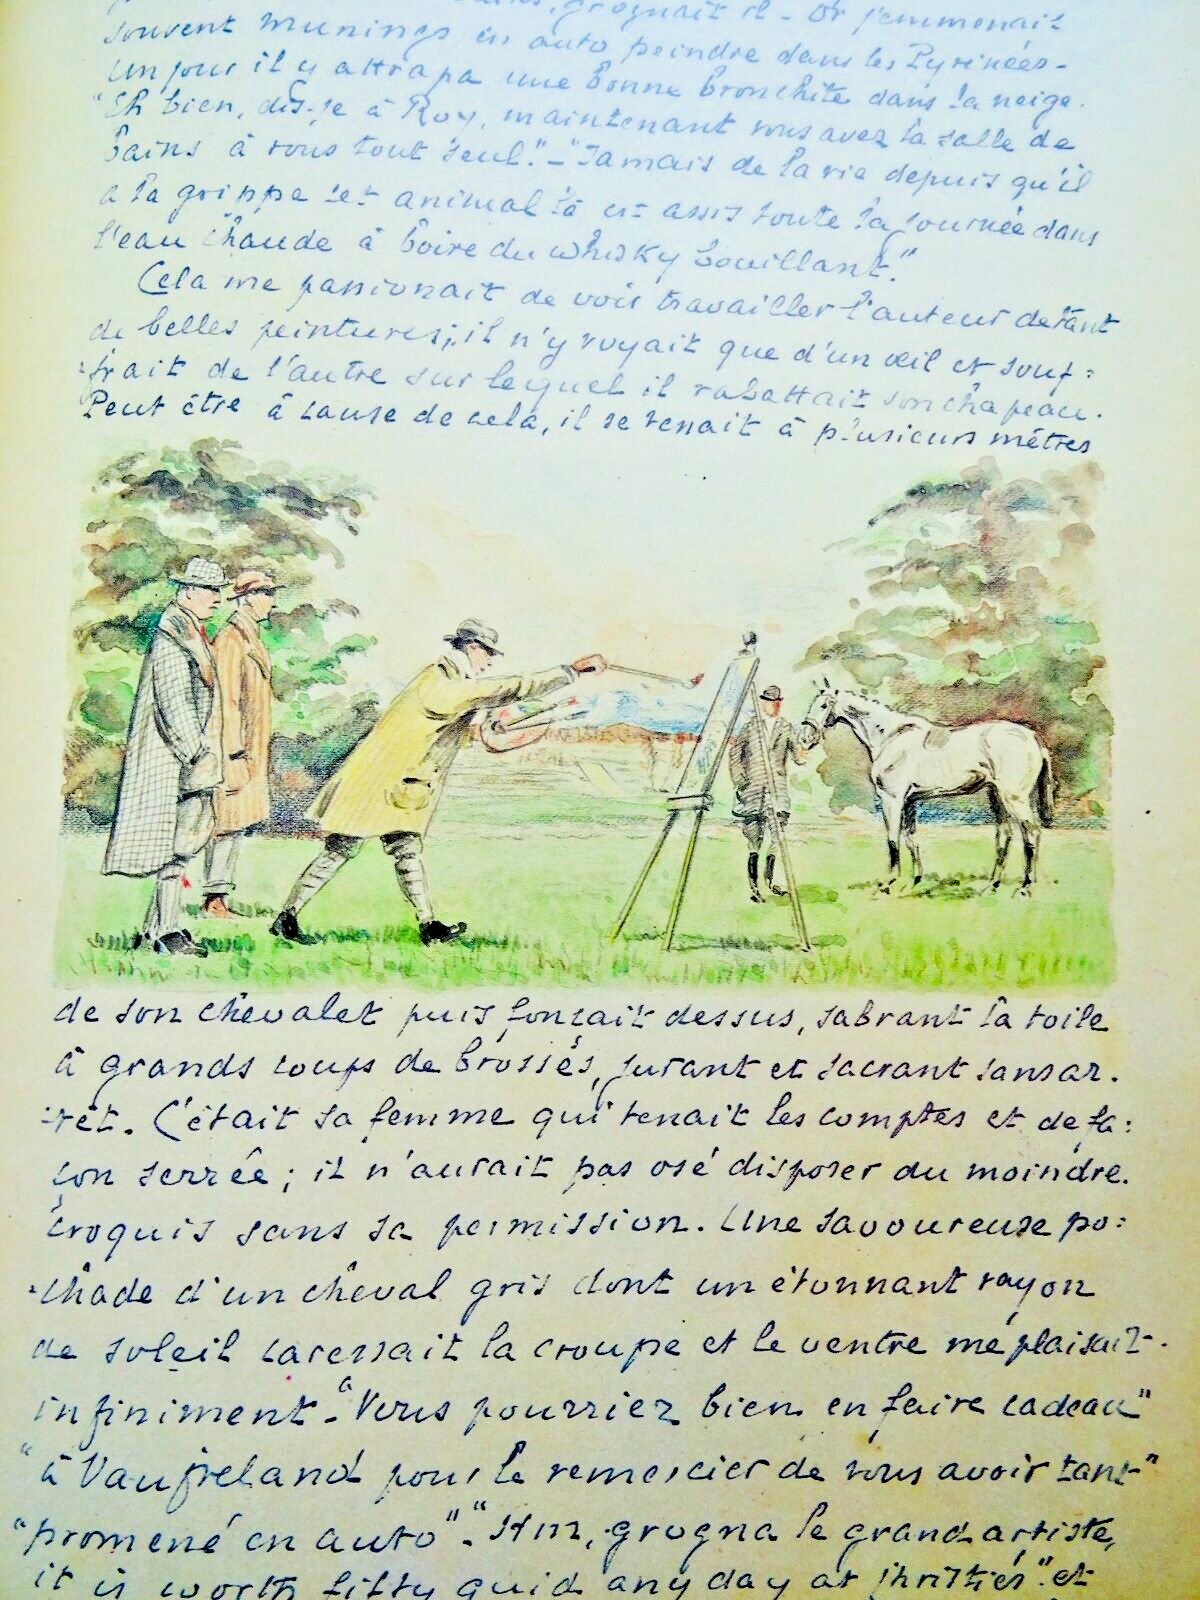 grognait il - Or j'emmenait
souvent Munings en auto peindre dans les Pyrinées -
Un jour il y attrapa une bonne bronchite dans la neige.
"Eh bien, dis-je à Roy, maintenant vous avez la salle de
bains à vous tout seul." - "Jamais de la vie depuis qu'il
a la grippe cet animal là est assis toute la journée dans
l'eau chaude à boire du whisky bouillant."
Cela me passionait de voir travailler l'auteur de tant
de belles peintures; il n'y voyait que d'un œil et souf=
=frait de l'autre sur lequel il rabattait son chapeau.
Peut être à cause de cela, il se tenait à plusieurs mètres
de son chevalet puis fonçait dessus, sabrant la toile
à grands coups de brosses, jurant et sacrant sans ar.
-rêt. C'était sa femme qui tenait les comptes et de fa:
çon serrée; il n'aurait pas osé disposer du moindre.
croquis sans sa permission. Une savoureuse po:
-chade d'un cheval gris dont un étonnant rayon
de soleil caressait la croupe et le ventre me plaisait.
infiniment - "Vous pourriez bien en faire cadeau"
"à Vaufreland pour le remercier de vous avoir tant"
"promené en auto" - "Hm, grogna le grand artiste,
it is worth fifty quid any day at Christies". et